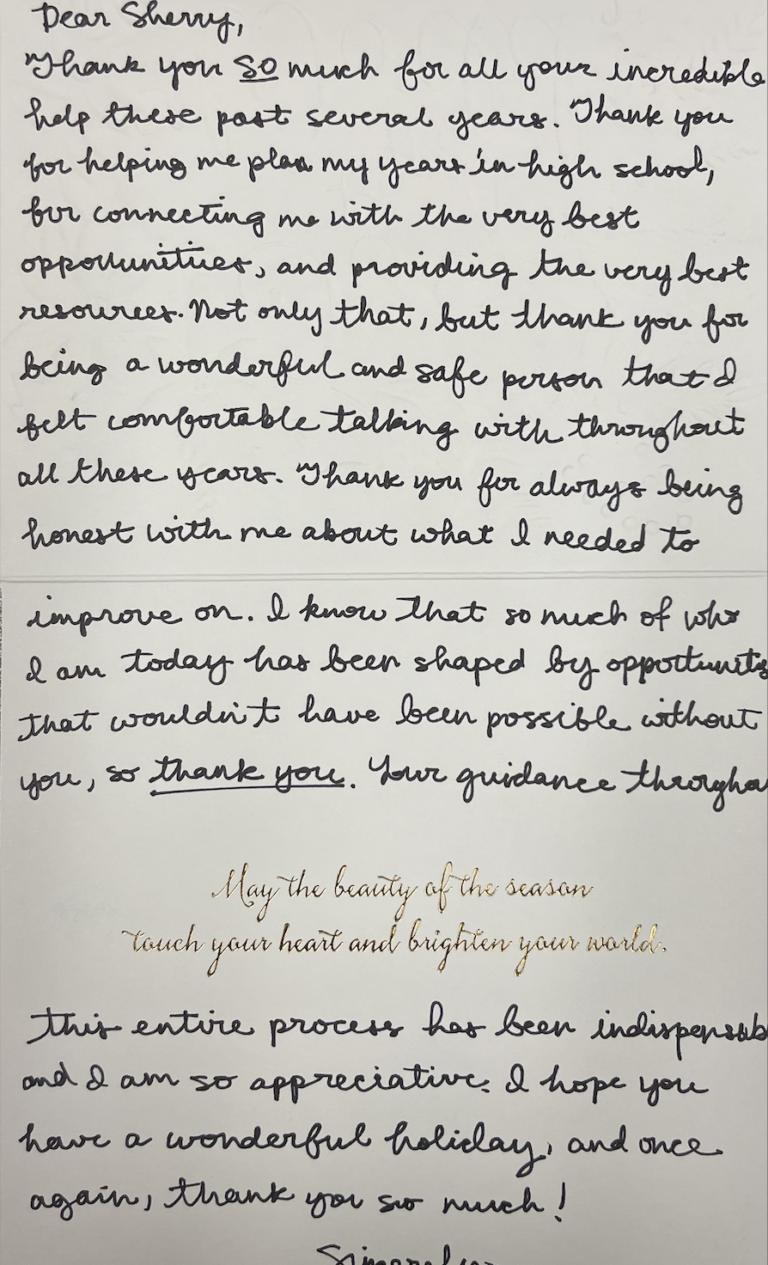 Dear Sherry,
Thank you SO much for all your incredible
help these past several years. Thank you
for helping me plan my years in high school,
for connecting me with the very best
opportunities, and providing the very best
resources. Not only that, but thank you for
being a wonderful and safe person that I
felt comfortable talking with throughout
all these years. Thank you for always being
honest with me about what I needed to
improve on. I know that so much of who
I am today has been shaped by opportunities
that wouldn't have been possible without
you, so thank you. Your guidance throughou
May the beauty of the season
touch your heart and brighten your world.
this entire process has been indispensab
and I am so appreciative. I hope you
have a wonderful holiday, and once
again, thank you so much!
Sincerely,